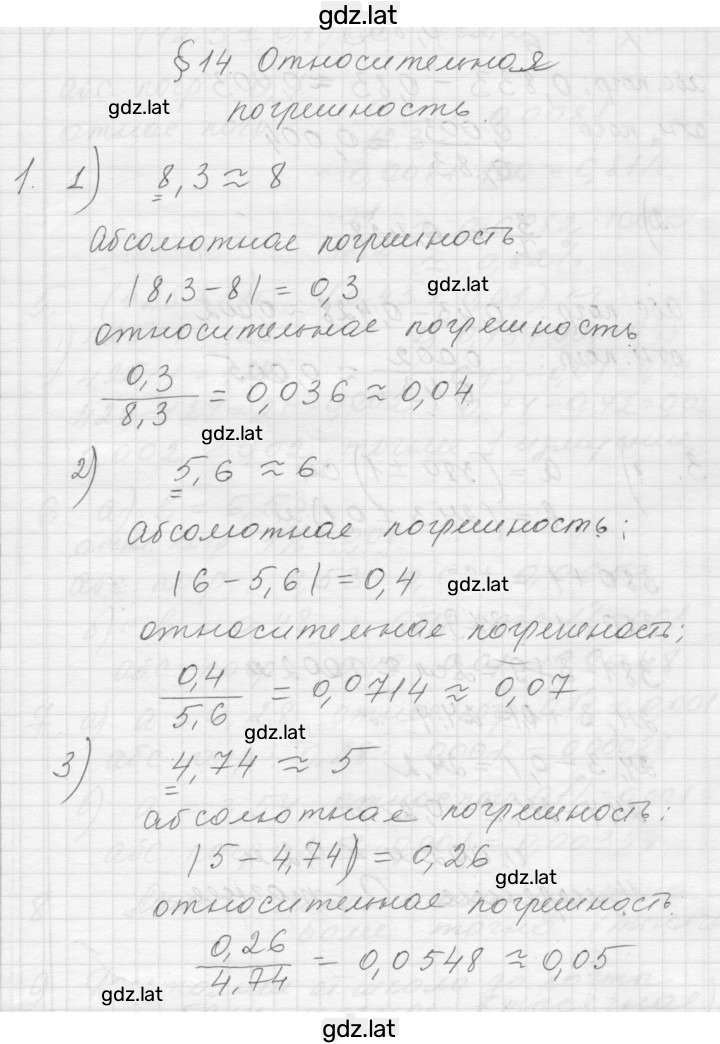 gdz.lat
§14 Относительная
gdz.lat погрешность.
1. 1) 8,3 ≈ 8
Абсолютная погрешность.
|8,3-8| = 0,3 gdz.lat
относительная погрешность
0,3/8,3 = 0,036 ≈ 0,04
gdz.lat
2) 5,6 ≈ 6
Абсолютная погрешность:
|6-5,6| = 0,4 gdz.lat
относительная погрешность;
0,4/5,6 = 0,0714 ≈ 0,07
gdz.lat
3) 4,74 ≈ 5
абсолютная погрешность:
|5-4,74| = 0,26
gdz.lat
относительная погрешность.
0,26/4,74 = 0,0548 ≈ 0,05
gdz.lat
gdz.lat